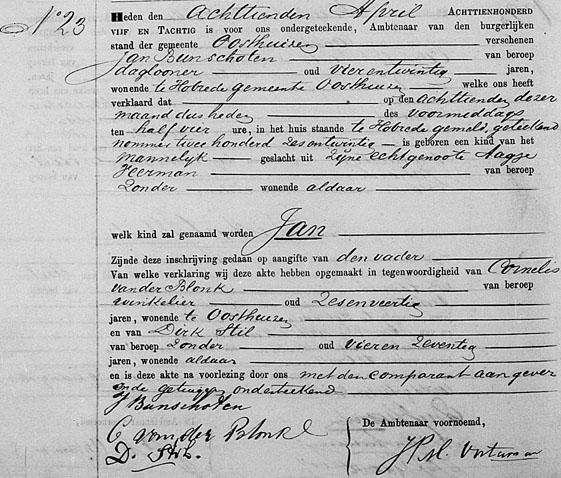 No 23
Heden den achttienden April ACHTTIENHONDERD
VIJF EN TACHTIG is voor ons ondergeteekende, Ambtenaar van den burgerlijken
stand der gemeente Oosthuizen verschenen
Jan Bunschoten van beroep
daglooner oud vierentwintig jaren,
wonende te Hobrede gemeente Oosthuizen welke ons heeft
verklaard dat op den achttienden dezer
maand dus heden des voormiddags
ten half vier ure, in het huis staande te Hobrede gemeld, geteekend
nommer twee honderd zesentwintig is geboren een kind van het
mannelijk geslacht uit zijne echtgenoote Aagje
Heerman van beroep
zonder wonende aldaar
welk kind zal genaamd worden Jan
Zijnde deze inschrijving gedaan op aangifte van den vader
Van welke verklaring wij deze akte hebben opgemaakt in tegenwoordigheid van Cornelis
van der Blonk van beroep
winkelier oud zesenveertig
jaren, wonende te Oosthuizen
en van Dirk Stil
van beroep zonder oud vieren zeventig
jaren, wonende aldaar
en is deze akte na voorlezing door ons met den comparant aangever
en de getuigen onderteekend
J Bunschoten
C van der Blonk
D. Stil.
De Ambtenaar voornoemd,